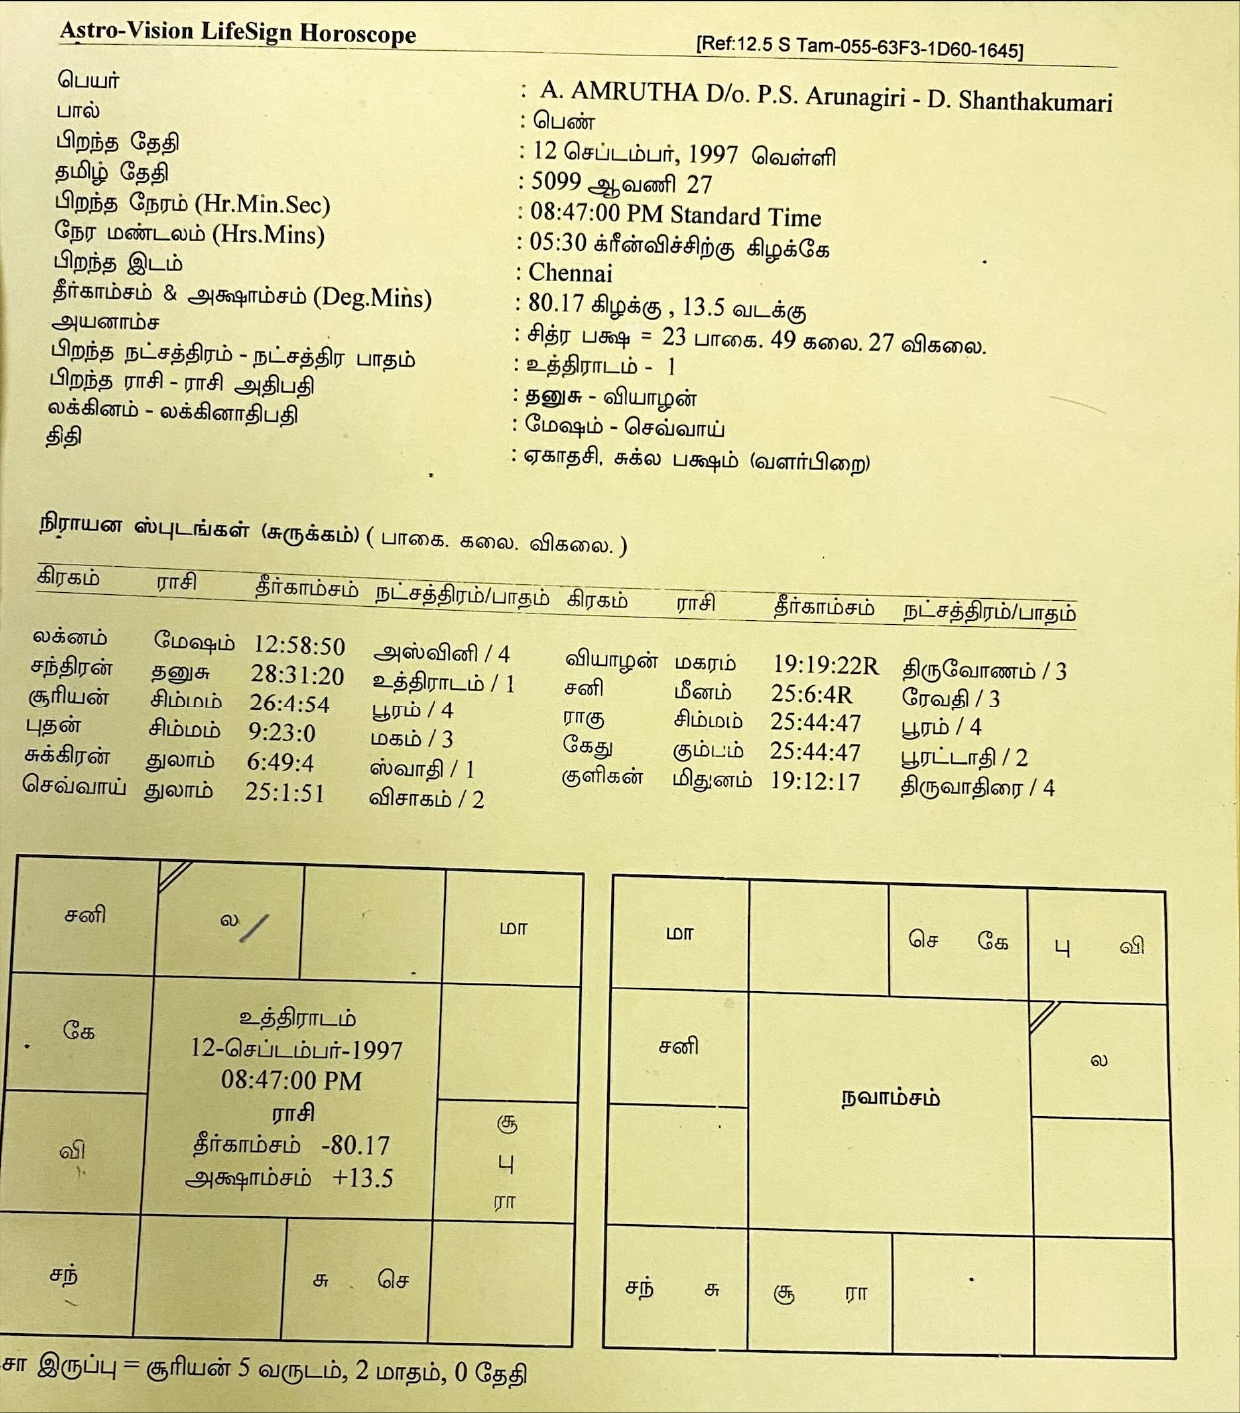 Astro-Vision LifeSign Horoscope [Ref:12.5 S Tam-055-63F3-1D60-1645]
பெயர் : A. AMRUTHA D/o. P.S. Arunagiri - D. Shanthakumari
பால் : பெண்
பிறந்த தேதி : 12 செப்டம்பர், 1997 வெள்ளி
தமிழ் தேதி : 5099 ஆவணி 27
பிறந்த நேரம் (Hr.Min.Sec) : 08:47:00 PM Standard Time
நேர மண்டலம் (Hrs.Mins) : 05:30 க்ரீன்விச்சிற்கு கிழக்கே
பிறந்த இடம் : Chennai
தீர்காம்சம் & அக்ஷாம்சம் (Deg.Mins) : 80.17 கிழக்கு , 13.5 வடக்கு
அயனாம்ச : சித்ர பக்ஷ = 23 பாகை. 49 கலை. 27 விகலை.
பிறந்த நட்சத்திரம் - நட்சத்திர பாதம் : உத்திராடம் - 1
பிறந்த ராசி - ராசி அதிபதி : தனுசு - வியாழன்
லக்கினம் - லக்கினாதிபதி : மேஷம் - செவ்வாய்
திதி : ஏகாதசி, சுக்ல பக்ஷம் (வளர்பிறை)
நிராயன ஸ்புடங்கள் (சுருக்கம்) ( பாகை. கலை. விகலை. )
கிரகம் ராசி தீர்காம்சம் நட்சத்திரம்/பாதம் கிரகம் ராசி தீர்காம்சம் நட்சத்திரம்/பாதம்
லக்னம் மேஷம் 12:58:50 அஸ்வினி / 4 வியாழன் மகரம் 19:19:22R திருவோணம் / 3
சந்திரன் தனுசு 28:31:20 உத்திராடம் / 1 சனி மீனம் 25:6:4R ரேவதி / 3
சூரியன் சிம்மம் 26:4:54 பூரம் / 4 ராகு சிம்மம் 25:44:47 பூரம் / 4
புதன் சிம்மம் 9:23:0 மகம் / 3 கேது கும்பம் 25:44:47 பூரட்டாதி / 2
சுக்கிரன் துலாம் 6:49:4 ஸ்வாதி / 1 குளிகன் மிதுனம் 19:12:17 திருவாதிரை / 4
செவ்வாய் துலாம் 25:1:51 விசாகம் / 2
சனி ல மா
கே
வி
சூ
பு
ரா
சந் சு செ
உத்திராடம்
12-செப்டம்பர்-1997
08:47:00 PM
ராசி
தீர்காம்சம் -80.17
அக்ஷாம்சம் +13.5
மா செ கே பு வி
சனி ல
நவாம்சம்
சந் சு சூ ரா
சா இருப்பு = சூரியன் 5 வருடம், 2 மாதம், 0 தேதி